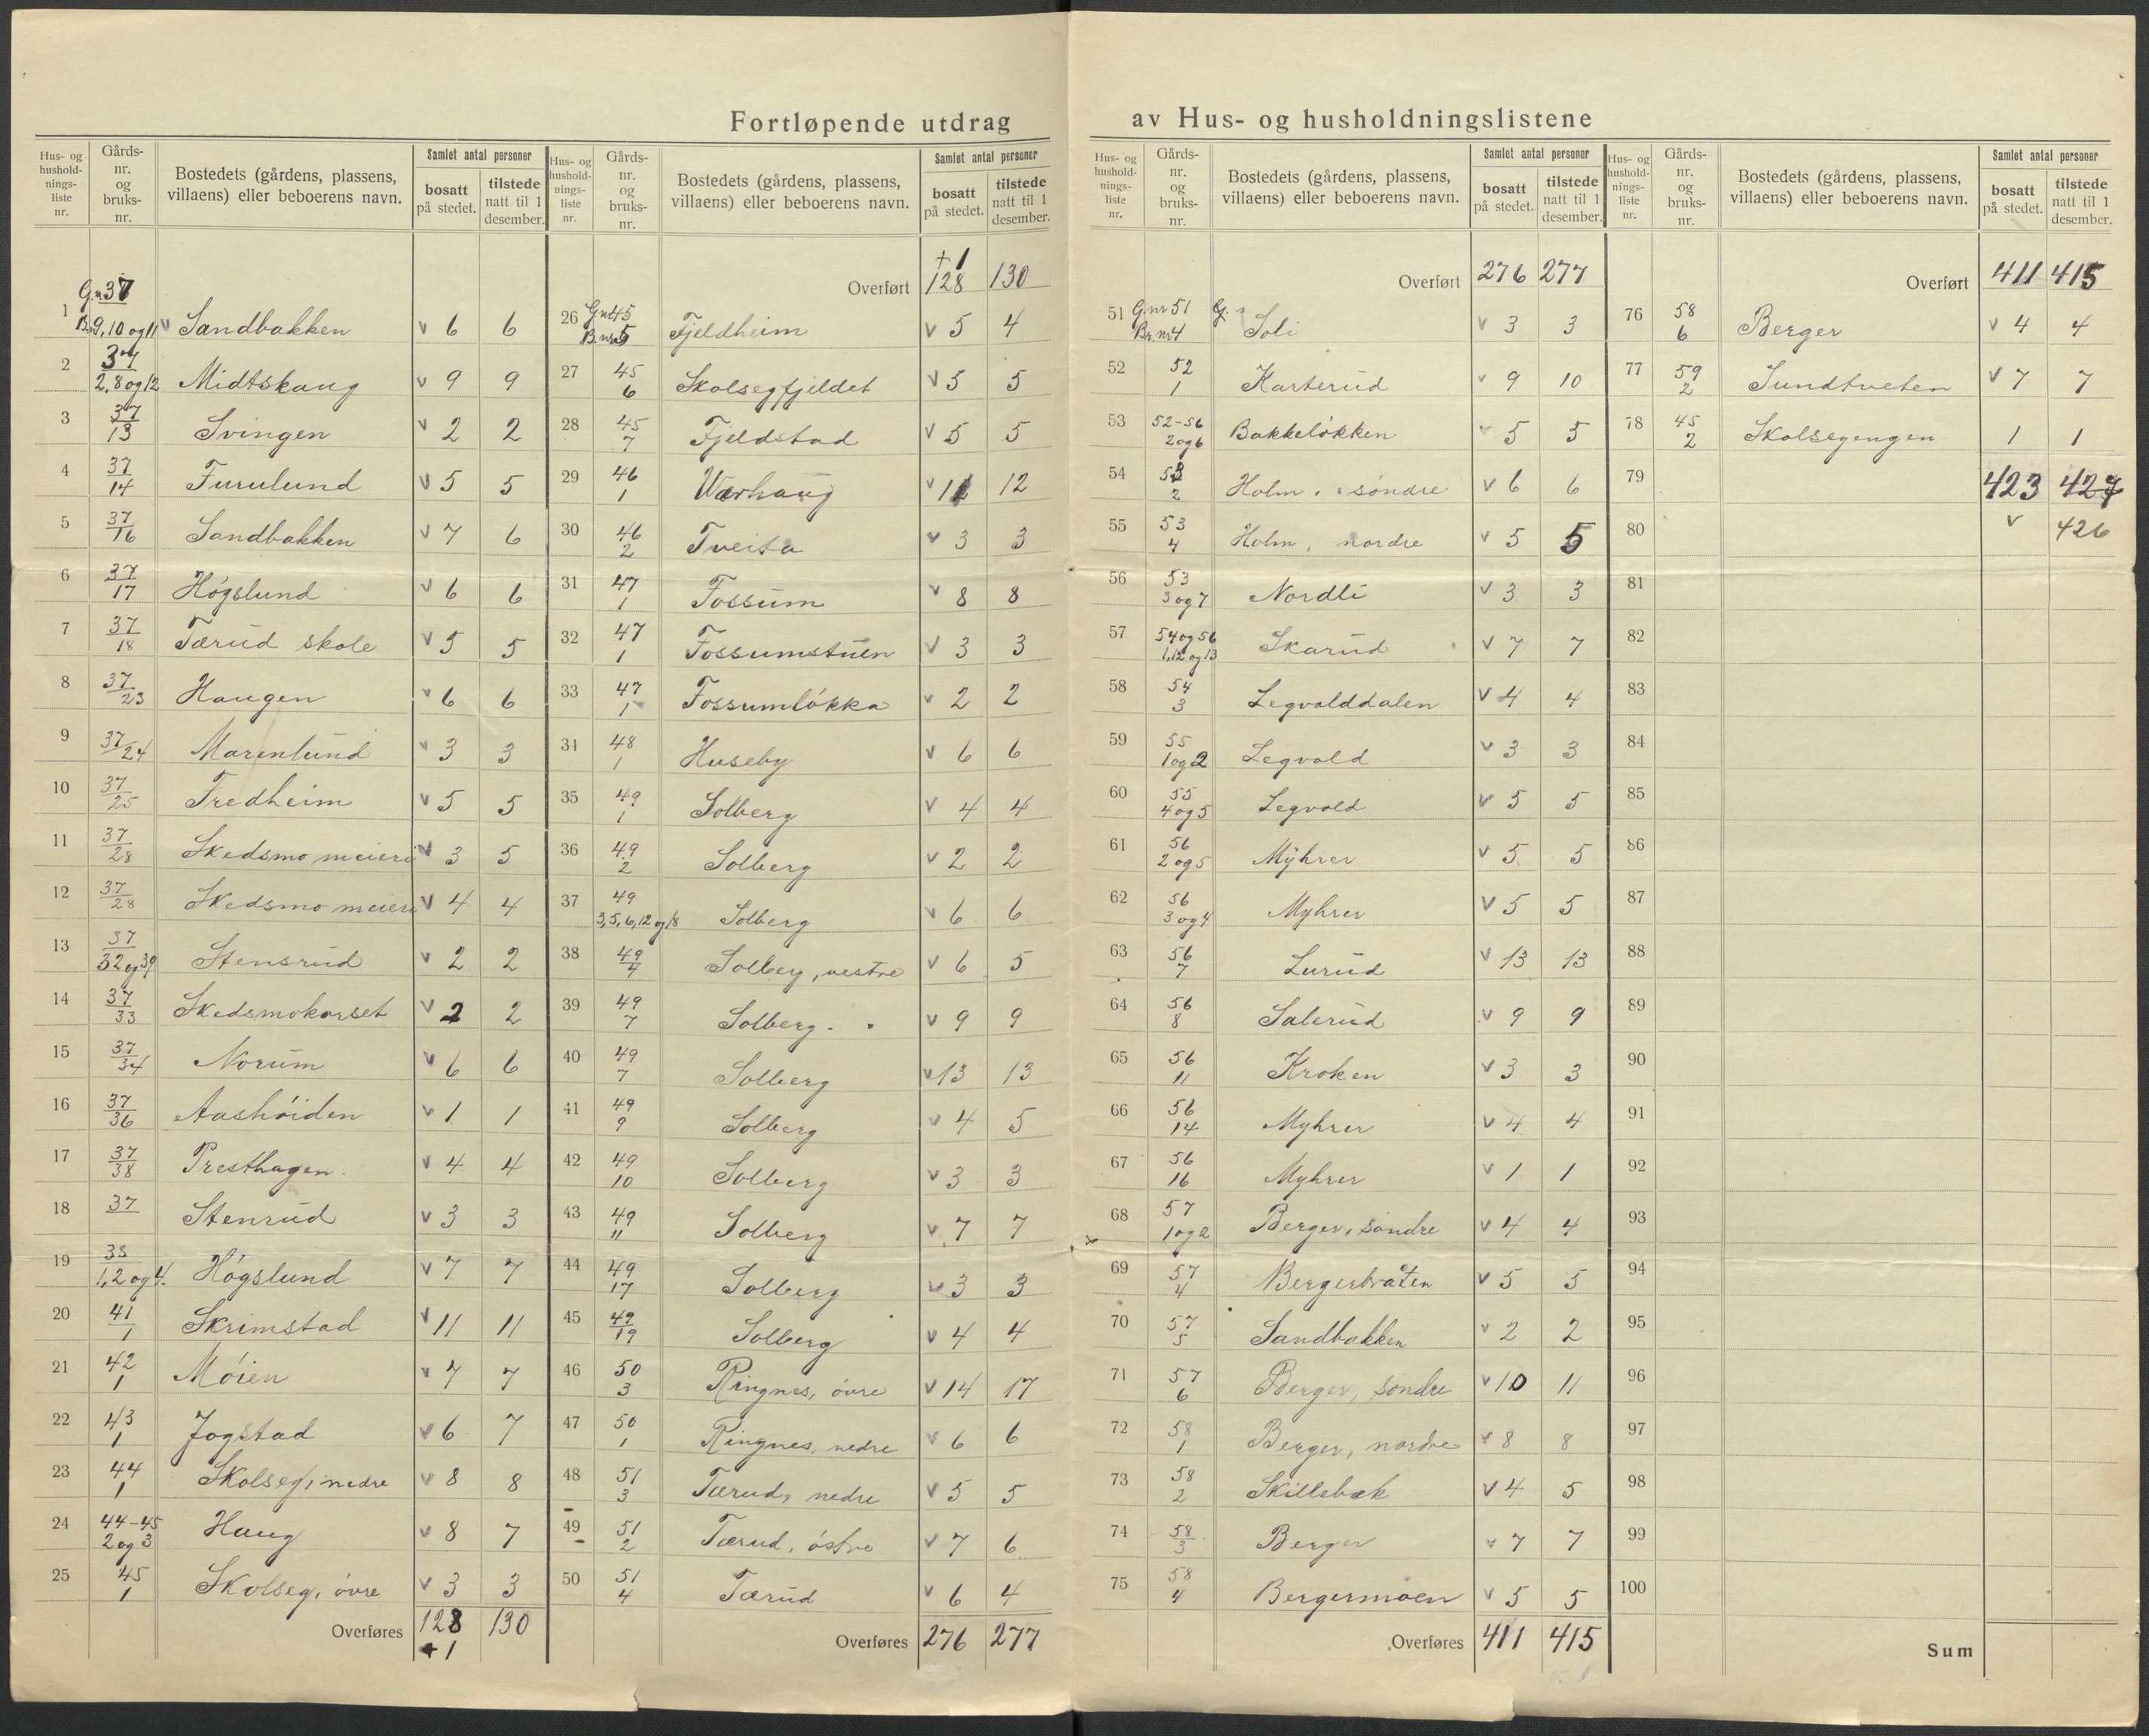 Fortløpende utdrag av Hus- og husholdningslistene
Hus- og hushold-nings-liste nr. | Gårds-nr. og bruks-nr. | Bostedets (gårdens, plassens, villaens) eller beboerens navn. | Samlet antal personer | bosatt på stedet. | tilstede natt til 1 desember.
1 G.n 37 B.n 9, 10 og 11 v Sandbakken v 6 6
2 37 2, 8 og 12 Midtskaug v 9 9
3 37/13 Svingen v 2 2
4 37/14 Furulund v 5 5
5 37/16 Sandbakken v 7 6
6 37/17 Høgslund v 6 6
7 37/18 Tærud skole v 5 5
8 37/23 Haugen v 6 6
9 37/24 Marenlund v 3 3
10 37/25 Fredheim v 5 5
11 37/28 Skedsmo meieri v 3 5
12 37/28 Skedsmo meieri v 4 4
13 37 32 og 39 Stensrud v 2 2
14 37/33 Skedsmokorset v 2 2
15 37/34 Norum v 6 6
16 37/36 Aashøiden v 1 1
17 37/38 Presthagen. v 4 4
18 37 Stenrud v 3 3
19 38 1, 2 og 4. Høgslund v 7 7
20 41/1 Skrimstad v 11 11
21 42 1 Moien v 7 7
22 43 1 Jogstad v 6 7
23 44 1 Skolseg, nedre v 8 8
24 44-45 2 og 3 Haug v 8 7
25 45 1 Skolseg, øvre v 3 3
Overføres 128 130
+1
Hus- og hushold-nings-liste nr. | Gårds-nr. og bruks-nr. | Bostedets (gårdens, plassens, villaens) eller beboerens navn. | Samlet antal personer | bosatt på stedet. | tilstede natt til 1 desember.
+1
Overført 128 130
26 G.nr 45 B.nr 5 Fjeldheim v 5 4
27 45 6 Skolsegfjeldet v 5 5
28 45 7 Fjeldstad v 5 5
29 46 1 Værhaug v 12
30 46 2 Tveita v 3 3
31 47 1 Fossum v 8 8
32 47 1 Fossumstuen v 3 3
33 47 1 Fossumløkka v 2 2
34 48 1 Huseby v 6 6
35 49 1 Solberg v 4 4
36 49 2 Solberg v 2 2
37 49 3, 5, 6, 12 og 18 Solberg v 6 6
38 49/4 Solberg, vestre v 6 5
39 49 7 Solberg v 9 9
40 49 7 Solberg v 13 13
41 49 9 Solberg v 4 5
42 49 10 Solberg v 3 3
43 49 11 Solberg v 7 7
44 49 17 Solberg v 3 3
45 49/19 Solberg v 4 4
46 50 3 Ringnes, øvre v 14 17
47 50 1 Ringnes, nedre v 6 6
48 51 3 Tærud, nedre v 5 5
49 51 2 Tærud, østre v 7 6
50 51 4 Tærud v 6 4
Overføres 276 277
Hus- og hushold-nings-liste nr. | Gårds-nr. og bruks-nr. | Bostedets (gårdens, plassens, villaens) eller beboerens navn. | Samlet antal personer | bosatt på stedet. | tilstede natt til 1 desember.
Overført 276 277
51 G.nr 51 Br.nr 4 Soli v 3 3
52 52 1 Karterud v 9 10
53 52-56 2 og 6 Bakkeløkken v 5 5
54 53 2 Holm, søndre v 6 6
55 53 4 Holm, nordre v 5 5
56 53 3 og 7 Nordli v 3 3
57 54 og 56 1, 12 og 13 Skarud v 7 7
58 54 3 Legvolddalen v 4 4
59 55 1 og 2 Legvold v 3 3
60 55 4 og 5 Legvold v 5 5
61 56 2 og 5 Myhrer v 5 5
62 56 3 og 4 Myhrer v 5 5
63 56 7 Lurud v 13 13
64 56 8 Salerud v 9 9
65 56 11 Kroken v 3 3
66 56 14 Myhrer v 4 4
67 56 16 Myhrer v 1 1
68 57 1 og 2 Berger, søndre v 4 4
69 57 4 Bergerbråten v 5 5
70 57 5 Sandbakken v 2 2
71 57 6 Berger, søndre v 10 11
72 58 1 Berger, nordre v 8 8
73 58 2 Skillebæk v 4 5
74 58/3 Berger v 7 7
75 58 4 Bergermoen v 5 5
Overføres 411 415
Hus- og hushold-nings-liste nr. | Gårds-nr. og bruks-nr. | Bostedets (gårdens, plassens, villaens) eller beboerens navn. | Samlet antal personer | bosatt på stedet. | tilstede natt til 1 desember.
Overført 411 415
76 58 6 Berger v 4 4
77 59 2 Sundtveten v 7 7
78 45 2 Skolsegengen 1 1
79 423 427
80 v 426
81
82
83
84
85
86
87
88
89
90
91
92
93
94
95
96
97
98
99
100
Sum